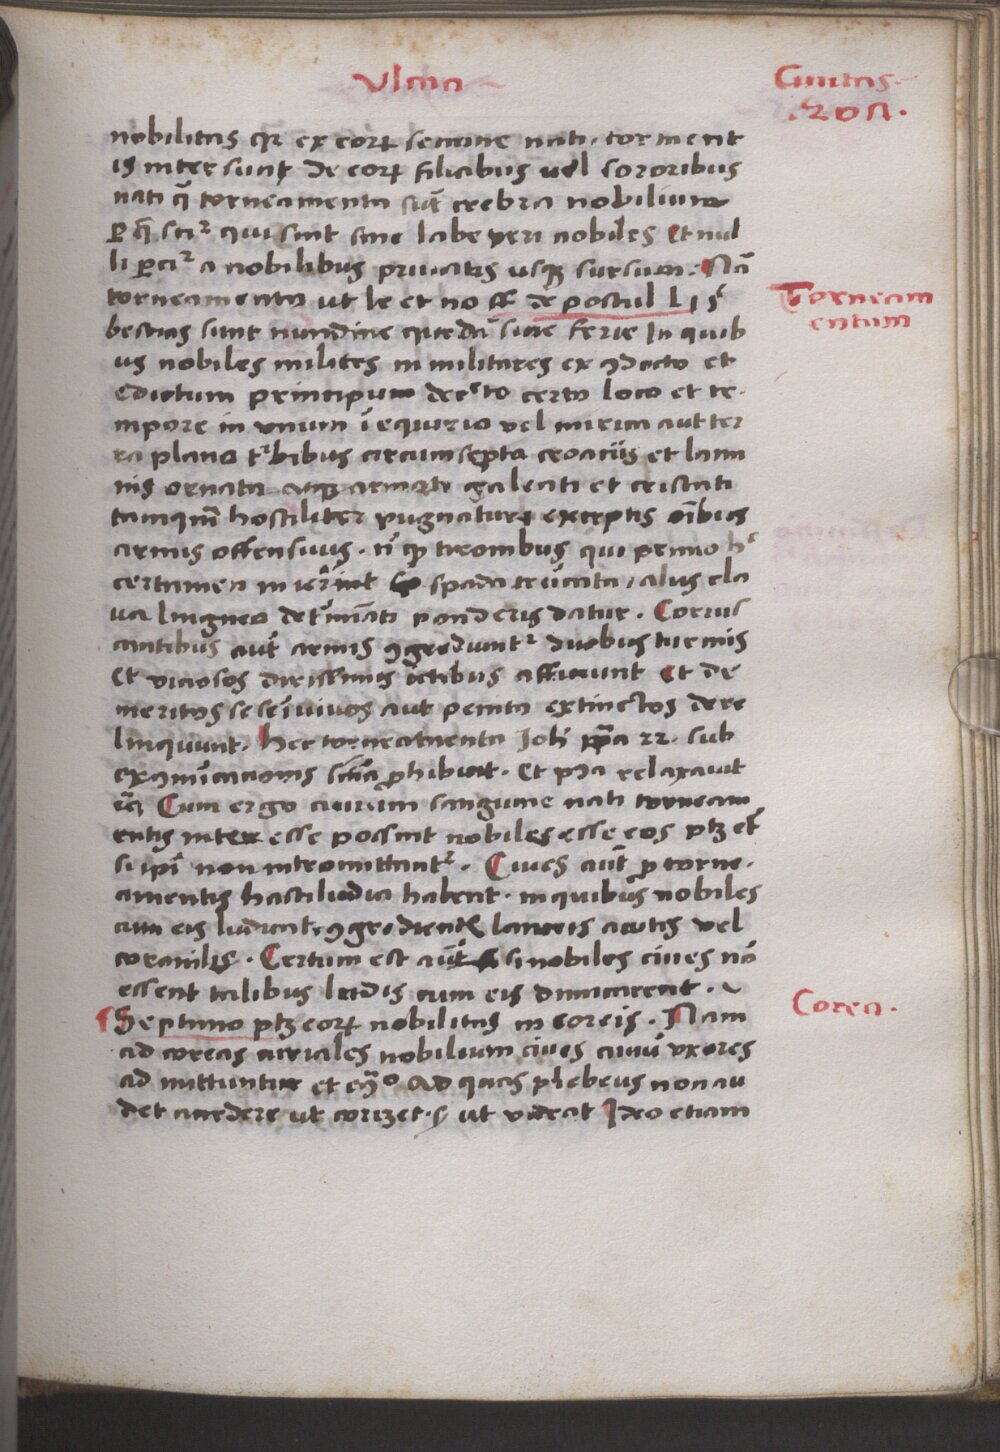 Ulma
Ciuitas.
201.
nobilitas qr ex eorꝝ semine nati. torment
is intersunt de eorꝝ filiabus uel sororibus
nati q̄ torneamenta sūt crebra nobilium
ꝑ q̄ scitur qui sint sine labe ueri nobiles Et nul
li ꝑcitur a nobilibus priuatis usqꝫ sursum. Nā
torneamenta ut le et no ff de postul L i §
bestias sunt nundine quedā siue ferie In quib
us nobiles milites in militares ex ꝯdicto et
edictum principum decreto certo loco et te
mpore in vnum
ra plana trabibus circumsepta et
nis ornata atqꝫ armati galeati et cristati
tamqm̄ hostiliter pugnaturi exceptis oībus
armis offensiuis. nͥ qꝫ tironibus qui primo hͨ
certamen inierint spada trūcata, alijs cla
ua lingnea detīnati ponderis datur. Corrus
cantibus aūt armis ꝯgrediuntur duobus turmis
et viciosos dirissimis ictibus afficiunt Et de
meritos se semiuiuos aut penitus extinctos dere
linquunt. Hec torneamenta Joh papa 22. sub
exꝯmūicacionis sn̄ia ꝓhibuit. Et pꝰea relaxauit
Cum ergo ciuium sanguine nati torneam
entis interesse possint nobiles esse eos ptꝫ et
si ipī non intromittantur. Ciues aūt ꝓ torne
amentis hastiludia habent. in quibus nobiles
cum eis ludunt ꝯgredientes lanceis acutis vel
coronalibus. Certum est aūt si nobiles ciues nō
essent talibus ludis cum eis dimicarent.
Septimo ptꝫ eorꝝ nobilitas in coreis. Nam
ad coreas curiales nobilium ciues ciuiū vxores
ad mittuntur et eꝯͦ Ad quas plebeus non au
det accedere ut corizet. ſꝫ ut videat Ideo etiam
Torneam
entum
Corea.